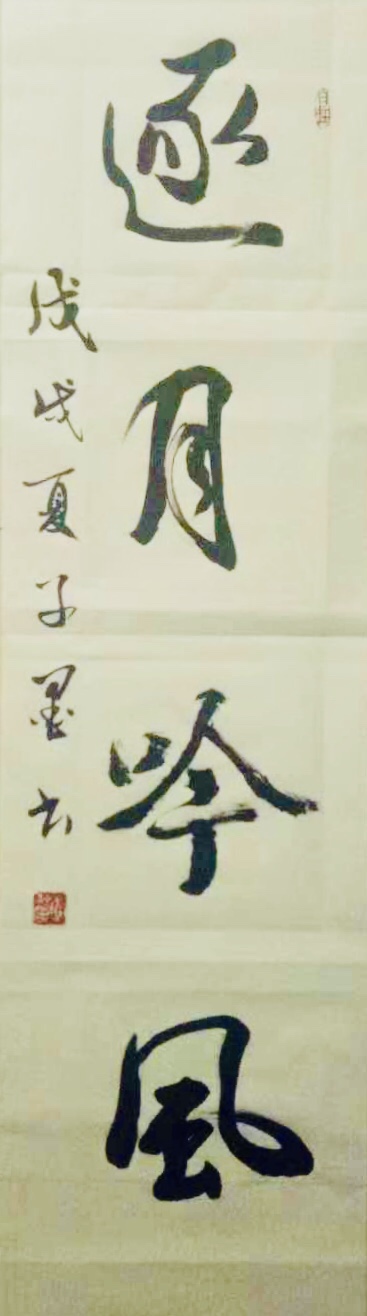 逐月吟風
戊戌夏子墨书